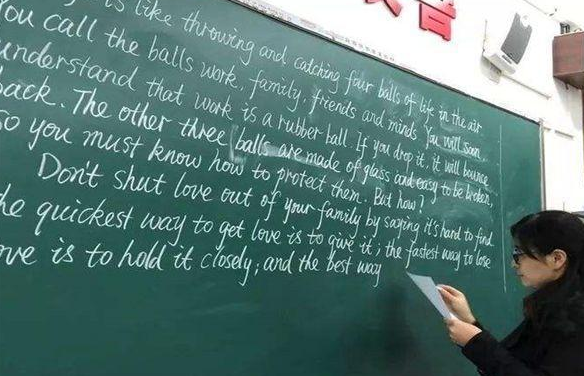 is like throwing and catching four balls of life in the air
you call the balls work, family, friends and minds. You will soon
understand that work is a rubber ball. If you drop it, it will bounce
back. The other three balls are made of glass and easy to be broken,
so you must know how to protect them. But how?
Don't shut love out of your family by saying it's hard to find.
he quickest way to get love is to give it; the fastest way to lose
ove is to hold it closely; and the best way